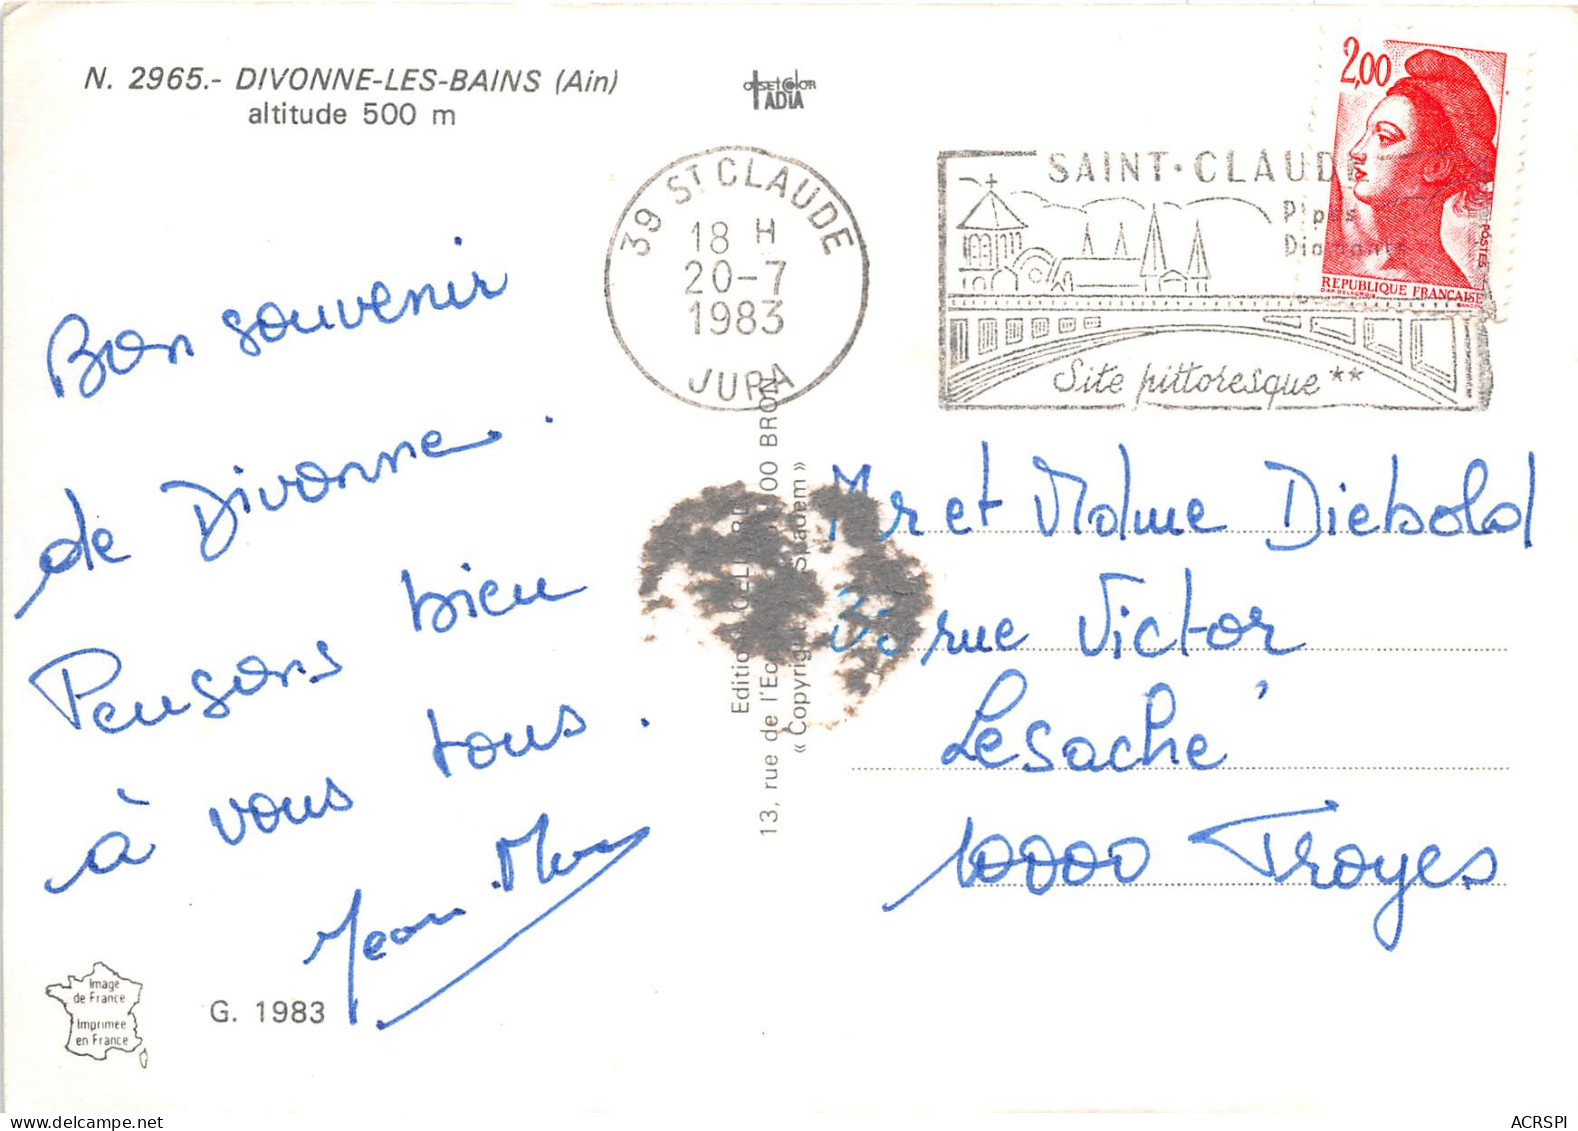 N. 2965.- DIVONNE-LES-BAINS (Ain)
altitude 500 m
39 ST CLAUDE
18 H
20-7
1983
JURA
SAINT·CLAUDE
Pipes
Diamants
Site pittoresque **
2,00
REPUBLIQUE FRANÇAISE
POSTES
Bon souvenir
de Divonne.
Pensons bien
à vous tous.
Jean Marc
Mr et Mdme Diebold
rue Victor
Lesaché
10000 Troyes
13, rue de l'Ec
00 BRON
« Copyrigh
Spadem »
Image
de France
Imprimée
en France
G. 1983
www.delcampe.net
ACRSPI